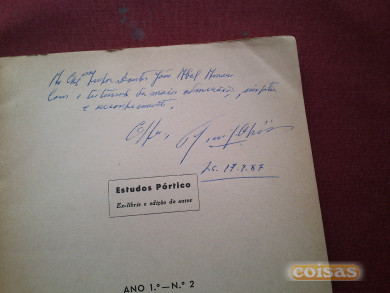 Ao Ex.mo Senhor Doutor João Abel Manta
Com o testemunho da maior admiração, simpatia
e reconhecimento,
Lx. 17.9.87
Estudos Pórtico
Ex-libris e edição do autor
ANO 1.º — N.º 2
coisas